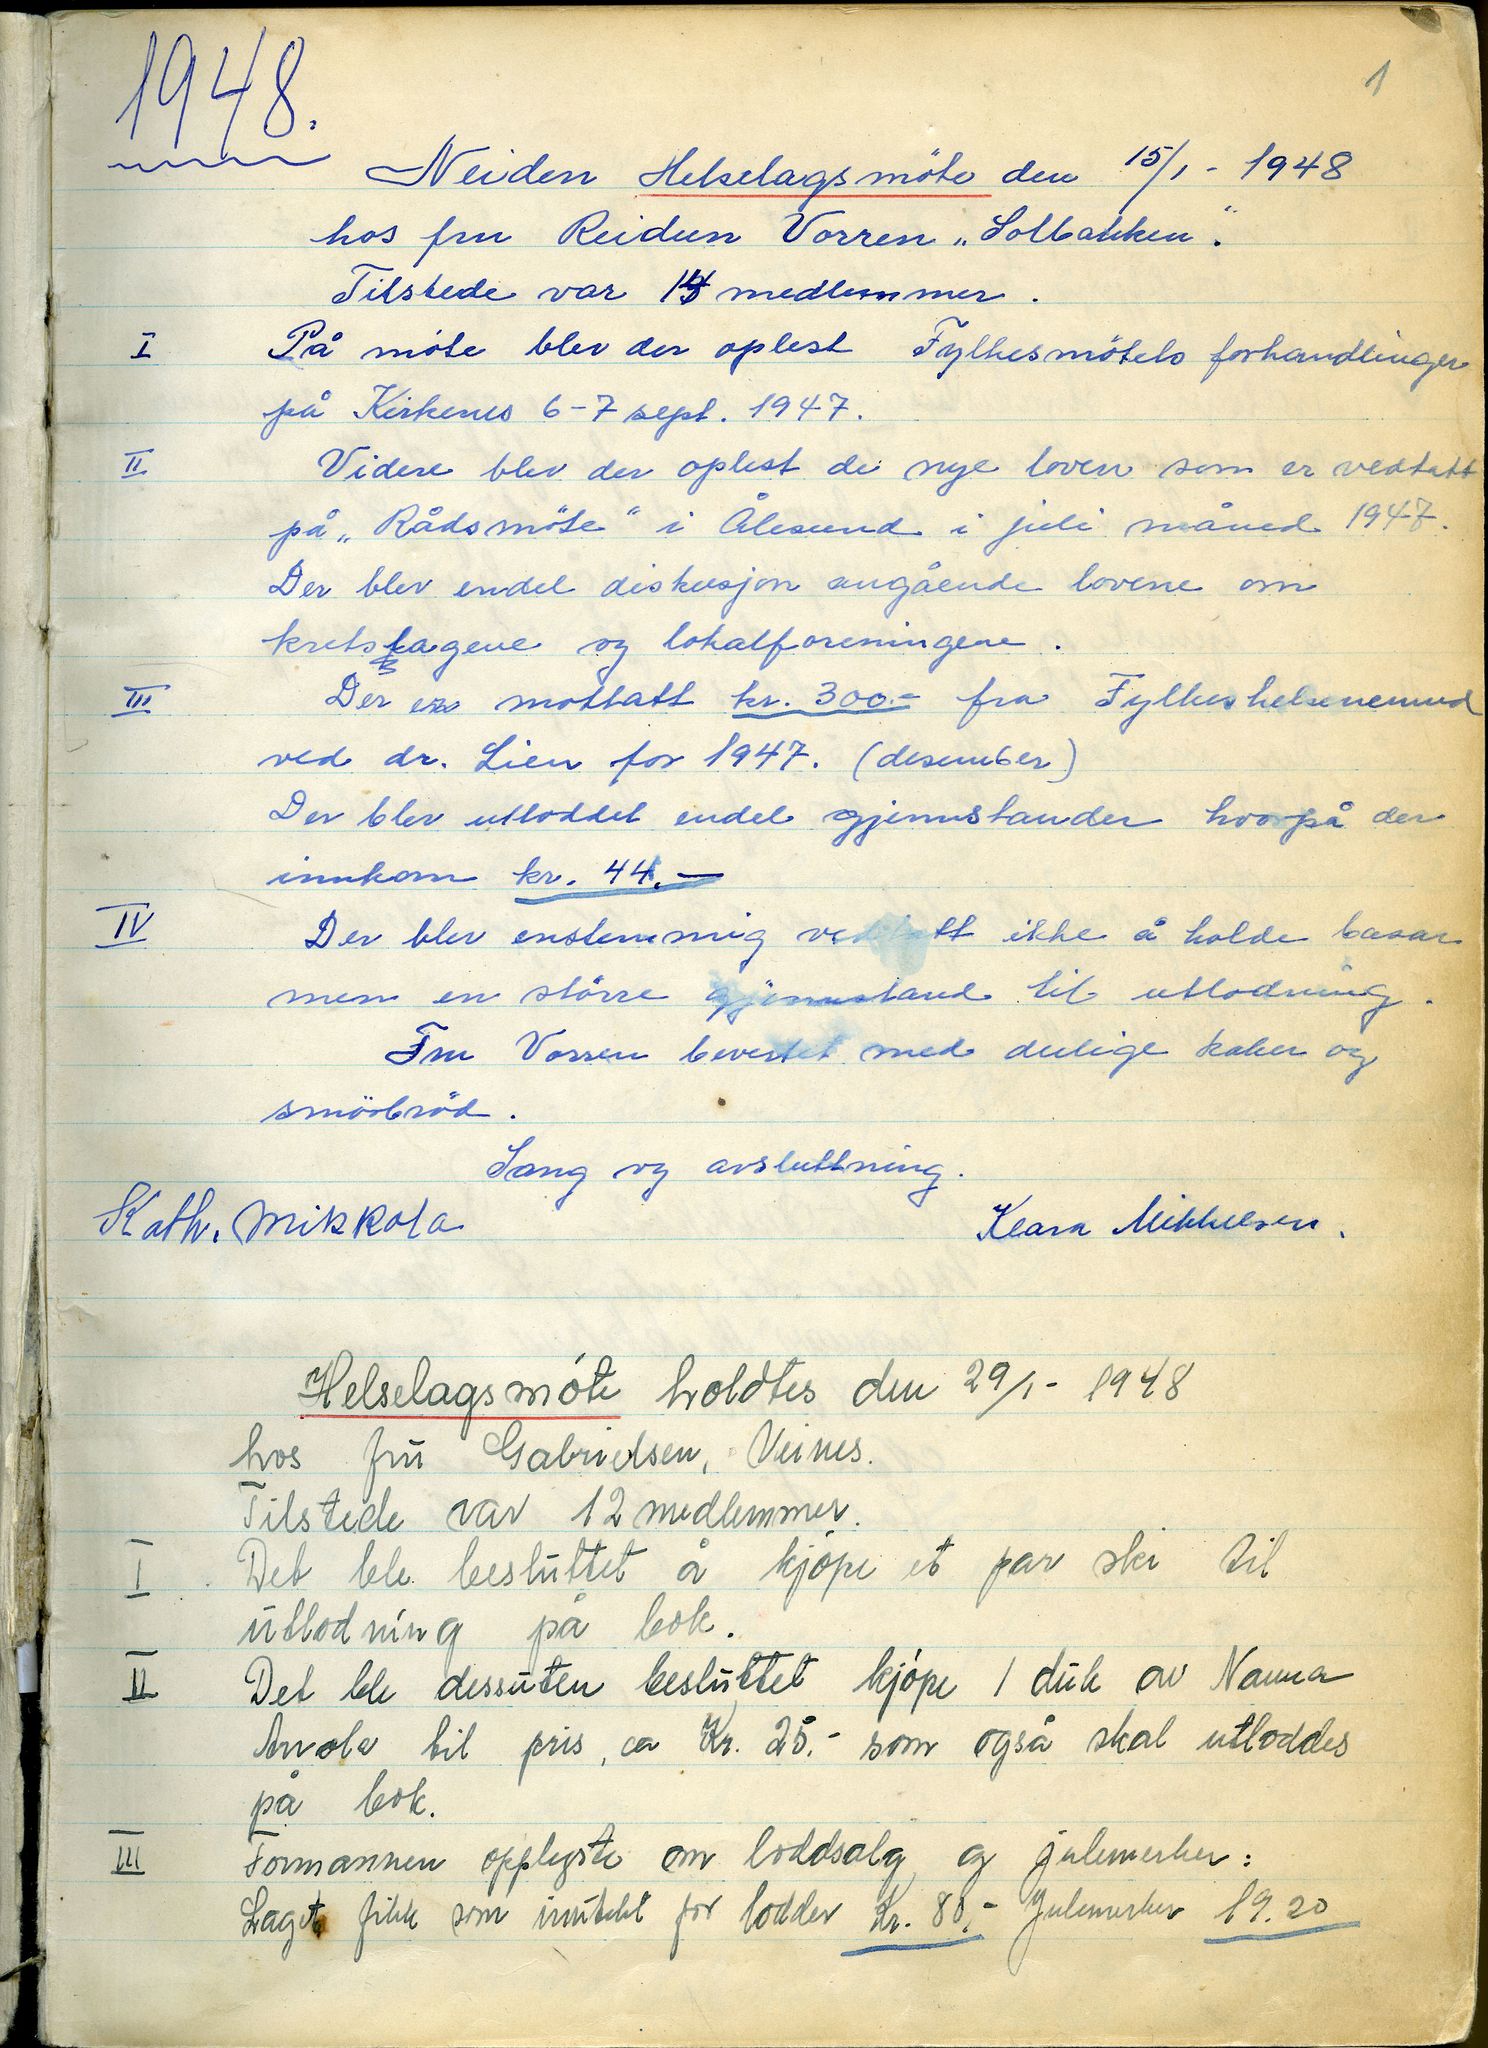 1948.
1
Neiden Helselagsmöte den 15/1 - 1948
hos fru Reidun Vorren „Solbakken".
Tilstede var 14 medlemmer.
I På möte blev der oplest Fylkesmötets forhandlinger
på Kirkenes 6-7 sept. 1947.
II Videre blev der oplest de nye loven som er vedtatt
på „Rådsmöte" i Ålesund i juli måned 1947.
Der blev endel diskusjon angående lovene om
kretslagene og lokalforeningene.
III Der er mottatt kr. 300.- fra Fylkeshelsenemnd
ved dr. Lien for 1947. (desember)
Der blev utloddet endel gjennstander hvorpå der
innkom kr. 44.-
IV Der blev enstemmig vedtatt ikke å holde basar
men en större gjennstand til utlodning.
Fru Vorren bevertet med deilige kaker og
smörbröd.
Sang og avsluttning.
Kath. Mikkola Klara Mikkelsen.
Helselagsmöte holdtes den 29/1 - 1948
hos frü Gabrielsen, Veines.
Tilstede var 12 medlemmer.
I Det ble beslüttet å kjöpe et par ski til
ütlodning på bok.
II Det ble dessüten beslüttet kjöpe 1 dük av Nanna
Arvola til pris, ca Kr. 25.- som også skal utloddes
på bok.
III Formannen opplyste om loddsalg og julemerker:
Laget fikk som inntekt for lodder Kr. 80,- Julemerker 19.20